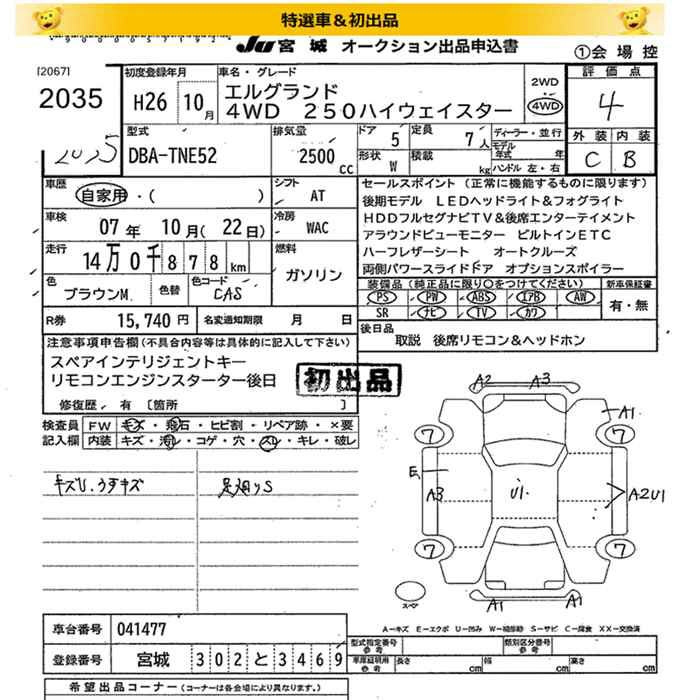 特選車＆初出品
JU 宮城 オークション出品申込書
①会場控
[2067]
2035
初度登録年月
H26 10月
車名・グレード
エルグランド
4WD 250ハイウェイスター
2WD
4WD
評価点
4
外装 内装
C B
2035
型式
DBA-TNE52
排気量
2500 cc
ドア 5
定員 7人
形状 W
積載 kg
ディーラー・並行
モデル年式 年
ハンドル 左・右
車歴
自家用・( )
シフト
AT
車検
07年 10月(22日)
冷房
WAC
走行
14万0千878km
燃料
ガソリン
色
ブラウンM.
色替
色コード
CAS
R券 15,740円
名変通知期限 月 日
セールスポイント (正常に機能するものに限ります)
後期モデル LEDヘッドライト&フォグライト
HDDフルセグナビTV&後席エンターテイメント
アラウンドビューモニター ビルトインETC
ハーフレザーシート オートクルーズ
両側パワースライドドア オプションスポイラー
装備品(純正品に限り○をつけてください)
新車保証書
PS PW ABS エアB AW
SR ナビ TV カワ
有・無
後日品
取説 後席リモコン&ヘッドホン
注意事項申告欄(不具合内容等は具体的に記入して下さい)
スペアインテリジェントキー
リモコンエンジンスターター後日
初出品
修復歴. 有 [箇所 ]
検査員記入欄
FW キズ・飛石・ヒビ割・リペア跡・×要
内装 キズ・汚レ・コゲ・穴・スレ・キレ・破レ
キズU.うすキズ
足廻りS
A2 A3
A1
7 7
E
A3 U1. A2U1
7 7
スペア
A1 A1
A－キズ E－エクボ U－凹み W－補修跡 S－サビ C－腐食 XX－交換済
車台番号 041477
型式指定番号 参考
類別区分番号 参考
登録番号 宮城 302 と 3469
車庫証明用 参考
長さ cm
幅 cm
高さ cm
希望出品コーナー (コーナーは各会場により異なります。)